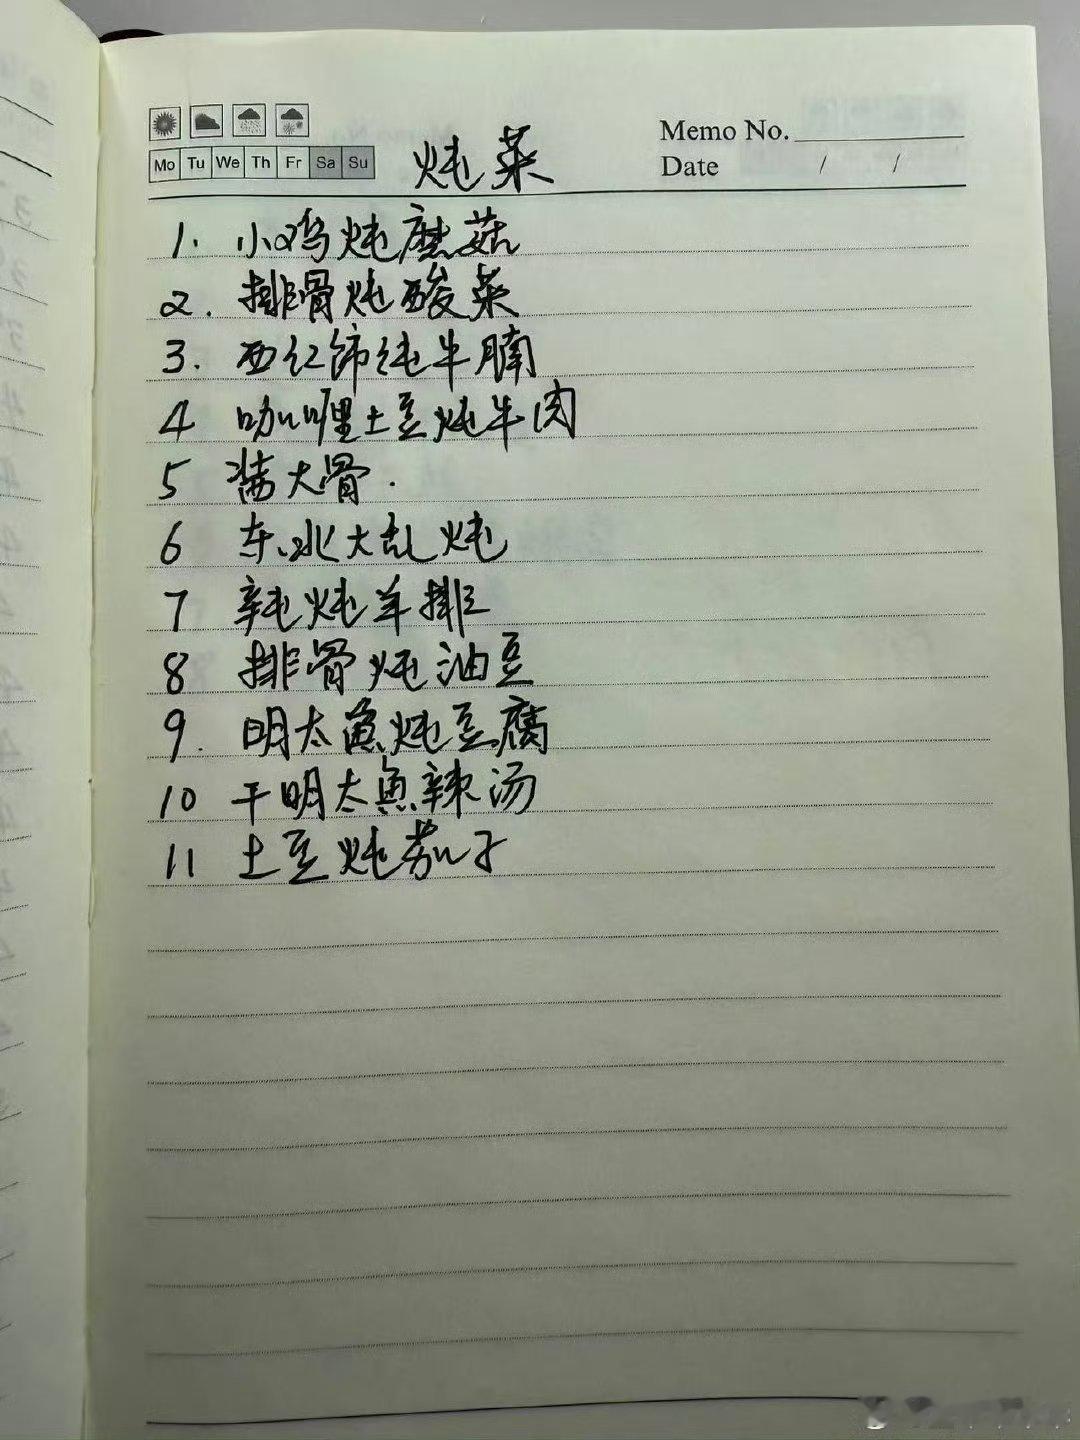 Memo No.
Mo Tu We Th Fr Sa Su
炖菜
Date / /
1. 小鸡炖蘑菇
2. 排骨炖酸菜
3. 西红饰炖牛腩
4 咖喱土豆炖牛肉
5 酱大骨.
6 东北大乱炖
7 辣炖羊排
8 排骨炖油豆
9. 明太鱼炖豆腐
10 干明太鱼辣汤
11 土豆炖茄子